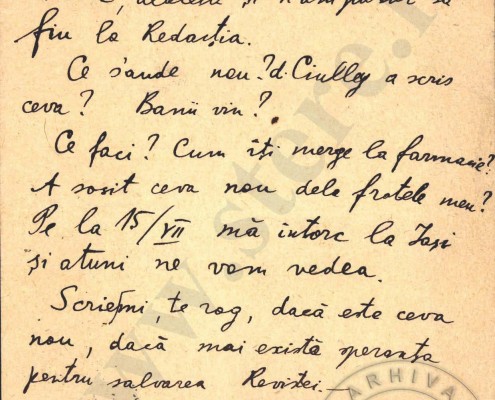 fiu la Redacția.
Ce s'aude nou? d. Ciulley a scris
ceva? Banii vin?
Ce faci? Cum îți merge la farmacie?
A sosit ceva nou dela fratele meu?
Pe la 15/VII mă întorc la Iași
și atunci ne vom vedea.
Scrieți-mi, te rog, dacă este ceva
nou, dacă mai există speranța
pentru salvarea Revistei.—
www.stere.r
ARHIVA